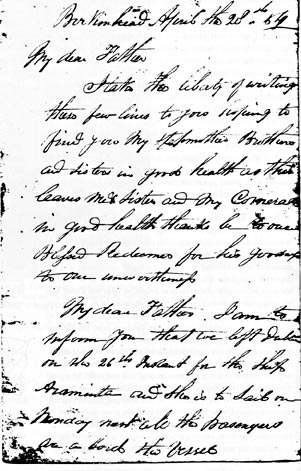 Birkinhead April the 28th 54
My dear Father
I take the liberty of writing
these few lines to you hoping to
find you My stepmother Brothers
and sisters in good health as this
leaves me & sister and My Comerades
in good health thanks be to our
Blessed Redeemer for his goodness
to our unworthiness
My dear Father I am to
inform you that we left Dublin
on the 26th Instant for the Ship
Araminta and she is to sail on
Monday next all the Passengers
are on board the Vessel